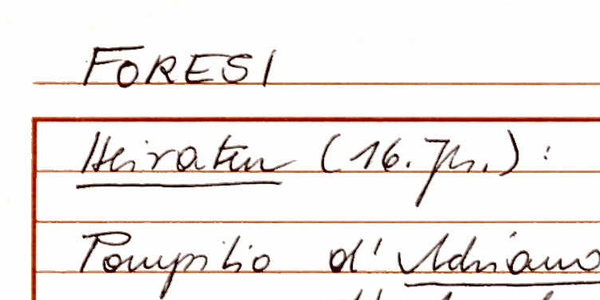 FORESI
Heiraten (16. Jh.) :
Pompilio d' Adriano
d'